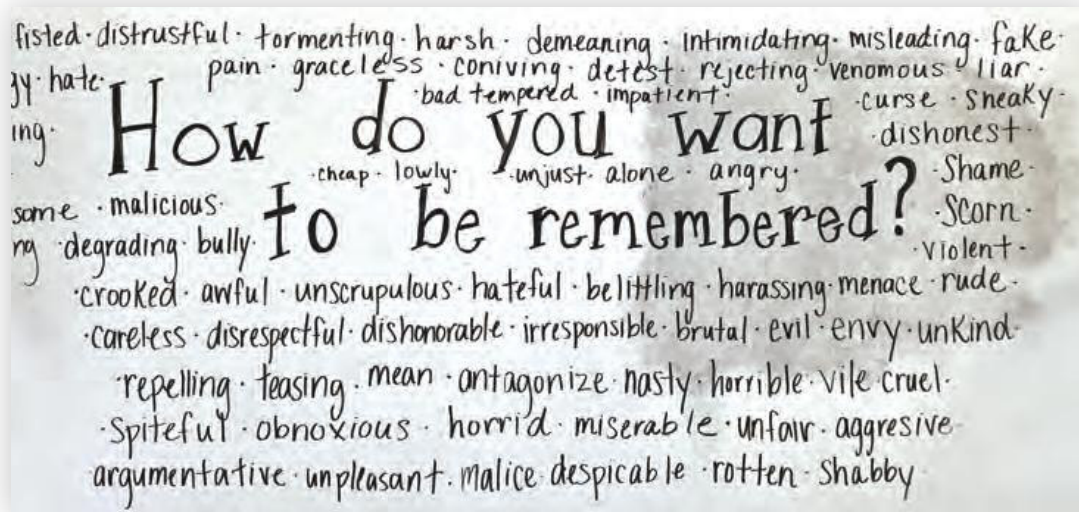 fisted · distrustful · tormenting · harsh · demeaning · intimidating · misleading · fake ·
gy · hate · pain · graceless · coniving · detest · rejecting · venomous · liar ·
· bad tempered · impatient · · curse · sneaky ·
ing · How do you want · dishonest ·
· cheap · lowly · · unjust · alone · angry · · Shame ·
some · malicious · to be remembered? · Scorn ·
ng · degrading · bully · · violent ·
· crooked · awful · unscrupulous · hateful · belittling · harassing · menace · rude ·
· careless · disrespectful · dishonorable · irresponsible · brutal · evil · envy · unkind ·
· repelling · teasing · mean · antagonize · nasty · horrible · vile · cruel ·
· Spiteful · obnoxious · horrid · miserable · unfair · aggresive
argumentative · unpleasant · malice · despicable · rotten · shabby